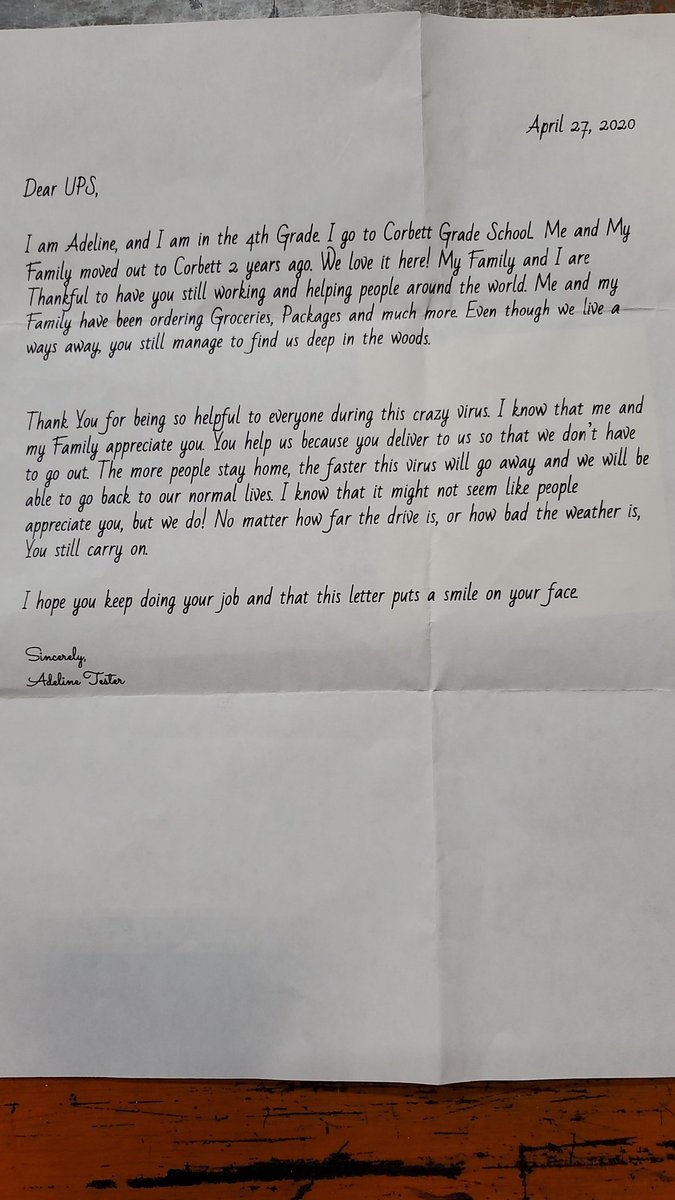 April 27, 2020
Dear UPS,
I am Adeline, and I am in the 4th Grade. I go to Corbett Grade School. Me and My
Family moved out to Corbett 2 years ago. We love it here! My Family and I are
Thankful to have you still working and helping people around the world. Me and my
Family have been ordering Groceries, Packages and much more. Even though we live a
ways away, you still manage to find us deep in the woods.
Thank You for being so helpful to everyone during this crazy virus. I know that me and
my Family appreciate you. You help us because you deliver to us so that we don't have
to go out. The more people stay home, the faster this virus will go away and we will be
able to go back to our normal lives. I know that it might not seem like people
appreciate you, but we do! No matter how far the drive is, or how bad the weather is,
You still carry on.
I hope you keep doing your job and that this letter puts a smile on your face.
Sincerely,
Adeline Tester